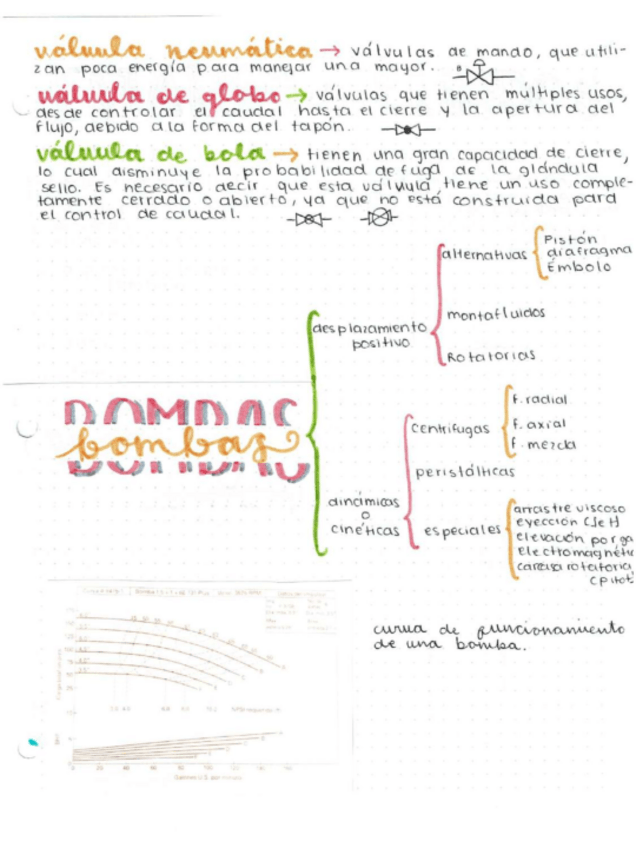 válvula neumática → válvulas de mando, que utili-
zan poca energía para manejar una mayor.
válvula de globo → válvulas que tienen múltiples usos,
desde controlar el caudal hasta el cierre y la apertura del
flujo, debido a la forma del tapón.
válvula de bola → tienen una gran capacidad de cierre,
lo cual disminuye la probabilidad de fuga de la glándula
sello. Es necesario decir que esta válvula tiene un uso comple-
tamente cerrado o abierto, ya que no está construida para
el control de caudal.
BOMBAS
bombas
desplazamiento
positivo
alternativas
Pistón
diafragma
Émbolo
montafluidos
Rotatorias
dinámicos
o
cinéticas
centrífugas
f. radial
f. axial
f. mezcla
peristálticas
especiales
arrastre viscoso
eyección CJet
elevación por ga
electromagnétic
carcasa rotatoria
cpitot
curva de funcionamiento
de una bomba.